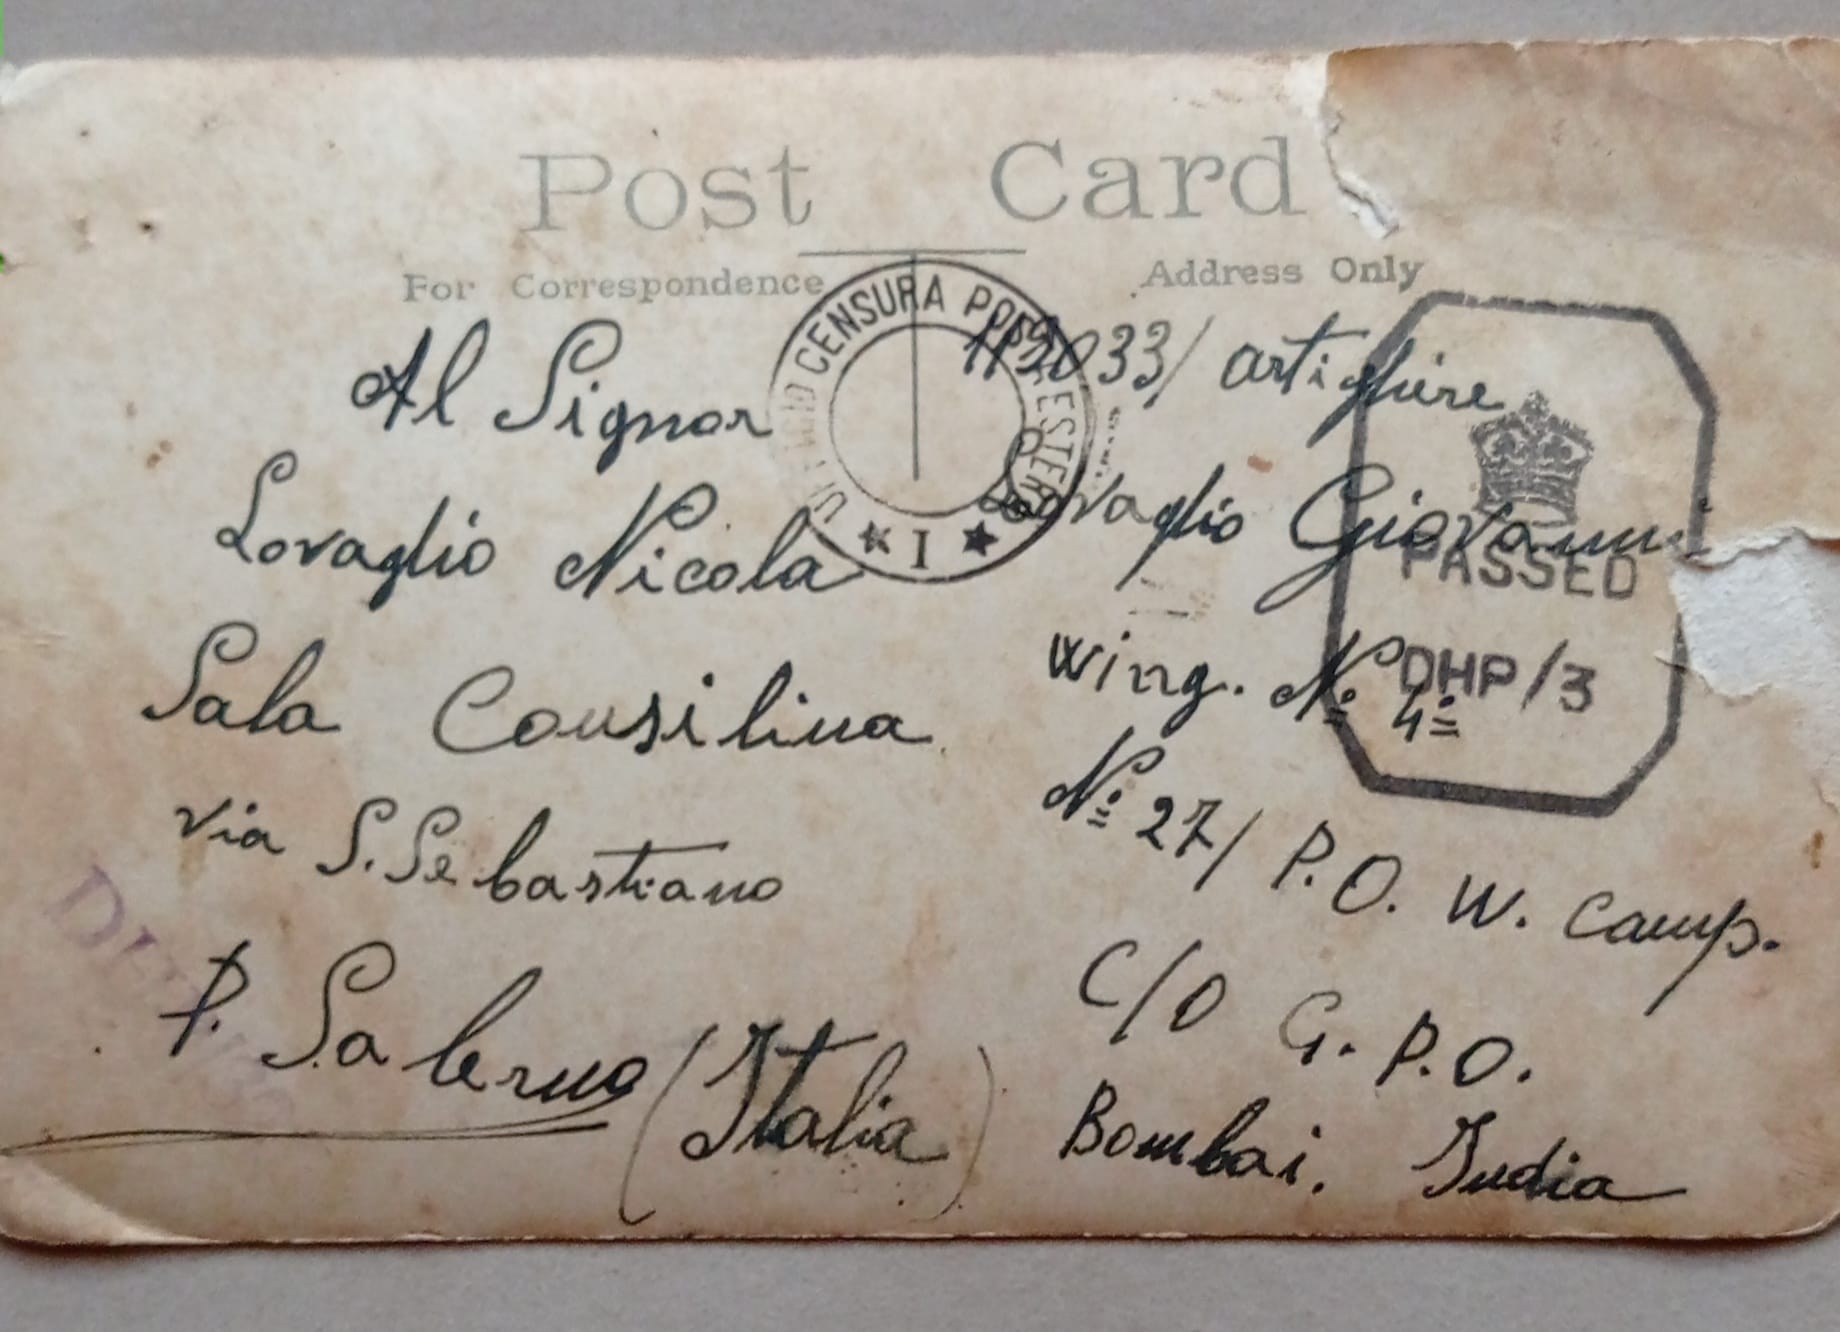 Post Card
For Correspondence
Address Only
CENSURA POSTALE ESTERA
★ I ★
Al Signor
Lovaglio Nicola
Sala Consilina
via S. Sebastiano
P. Salerno (Italia)
artigliere
Lovaglio Giovanni
Wing. Nº 4º
Nº 27/ P. O. W. Camp.
C/O G. P. O.
Bombai. India
PASSED
DHP/3